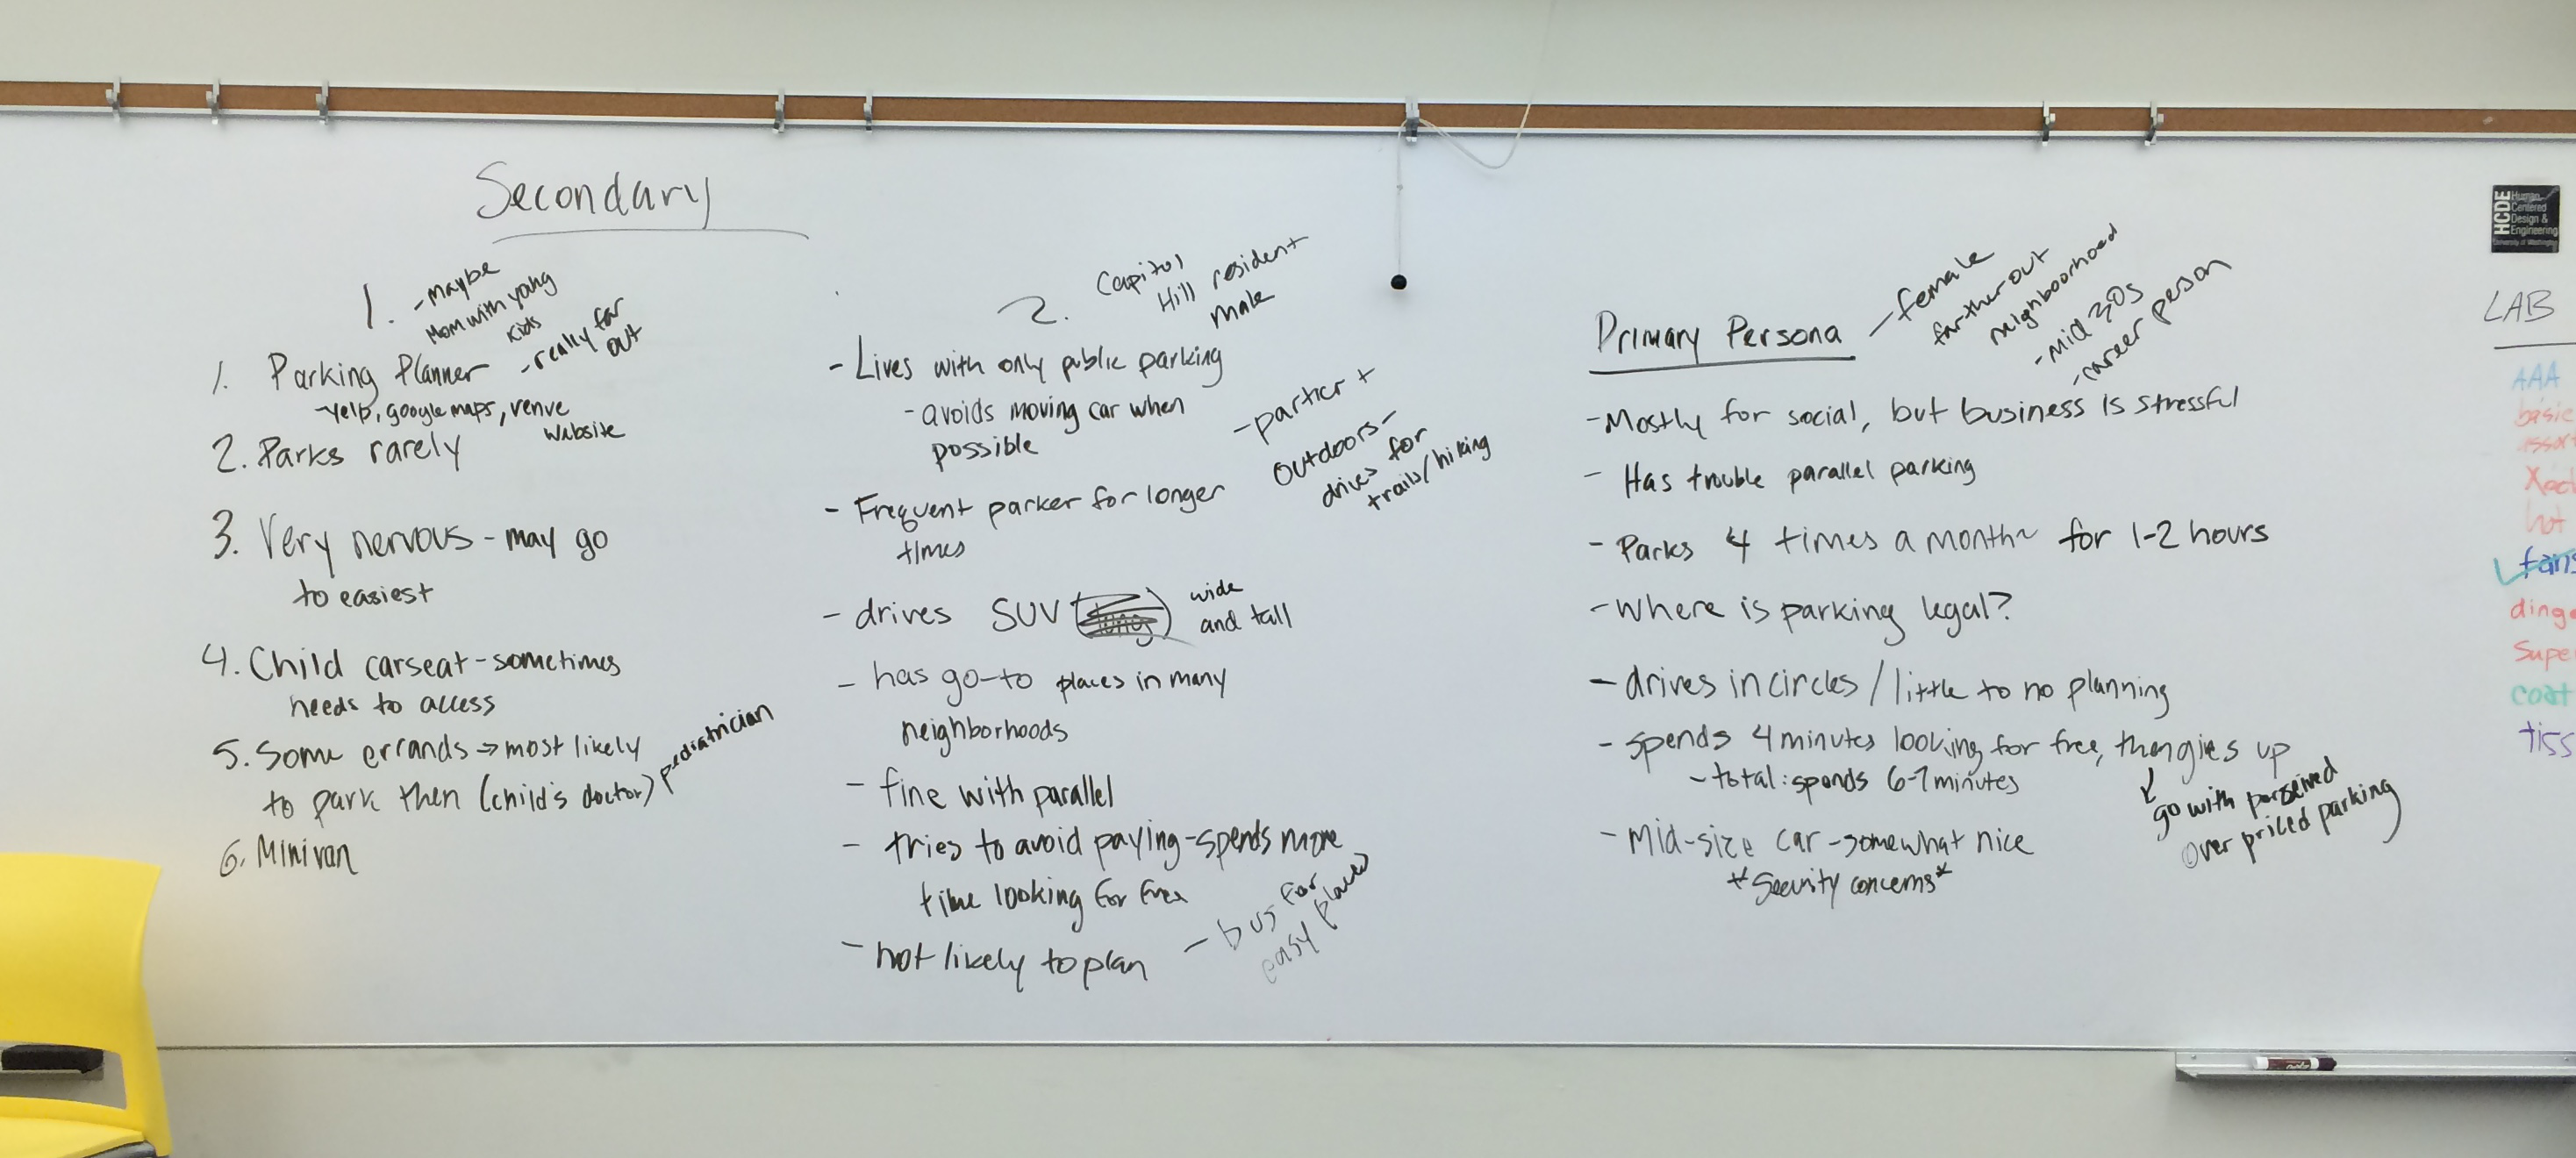 Secondary
1. - Maybe
Mom with young
kids
- really far
out
1. Parking Planner
- yelp, google maps, venue
website
2. Parks rarely
3. Very nervous - may go
to easiest
4. Child carseat - sometimes
needs to access
5. Some errands → most likely
to park then (child's doctor)
pediatrician
6. Minivan
2.
Capitol
Hill resident
male
- Lives with only public parking
- avoids moving car when
possible
- partier +
outdoors -
drives for
trails/hiking
- Frequent parker for longer
times
- drives SUV
wide
and tall
- has go-to places in many
neighborhoods
- fine with parallel
- tries to avoid paying - spends more
time looking for free
- not likely to plan
- bus for
easy places
Primary Persona
- female
farther out
neighboorhood
- mid 30s
- career person
- Mostly for social, but business is stressful
- Has trouble parallel parking
- Parks 4 times a month~ for 1-2 hours
- Where is parking legal?
- drives in circles / little to no planning
- spends 4 minutes looking for free, then gives up
- total: spends 6-7 minutes
↓ go with perseived
over priced parking
- Mid-size car - somewhat nice
* Security concerns *
HCDE
Human
Centered
Design &
Engineering
University of Washington
LAB
AAA
basic
hot
dings
Super
coat
tiss